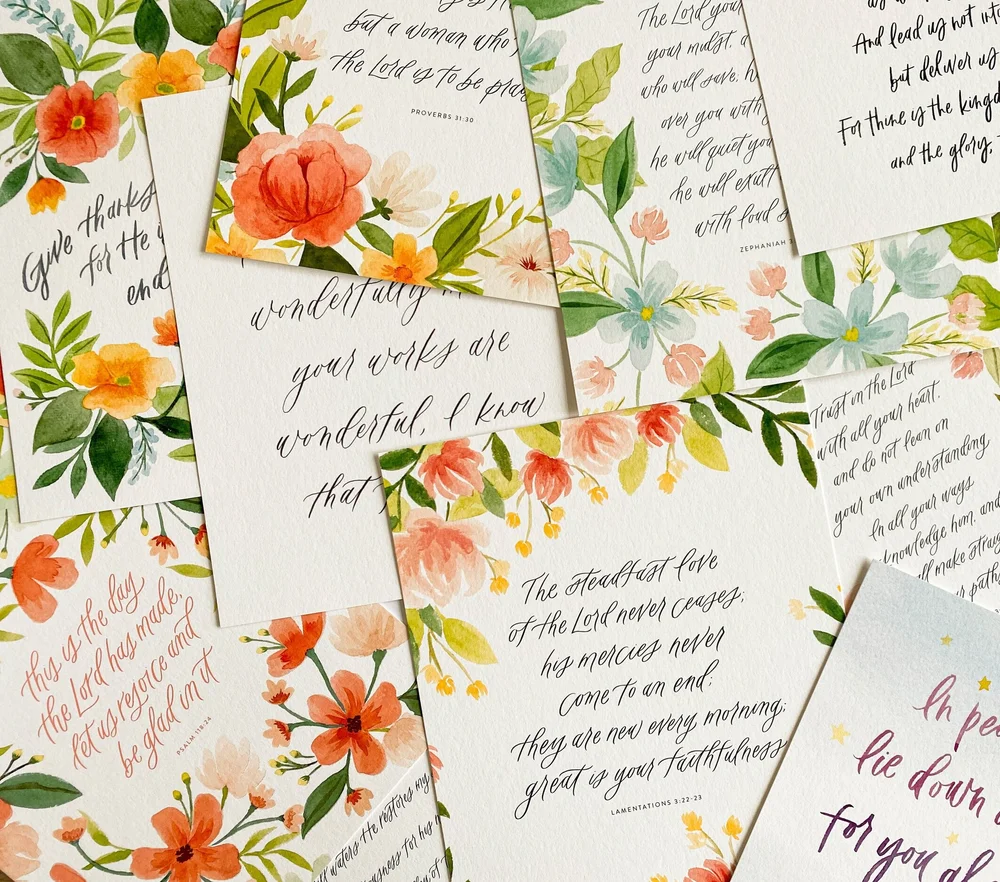 but a woman who
the Lord is to be
PROVERBS 31:30
The Lord your
your midst, a
who will save; h
over you with
he will quiet you
he will exult
with loud s
ZEPHANIAH 3
And lead us not into
but deliver us
For thine is the kingd
and the glory,
Give thanks
for He i
end
wonderfully m
your works are
wonderful, I know
that
Trust in the Lord
with all your heart,
and do not lean on
your own understanding,
In all your ways
knowledge him, and
ll make straig
r paths
this is the day
the Lord has made,
let us rejoice and
be glad in it
PSALM 118:24
The steadfast love
of the Lord never ceases;
his mercies never
come to an end;
they are new every morning;
great is your faithfulness
LAMENTATIONS 3:22-23
waters He restores my
ousness for his n
In pea
lie down a
for you al